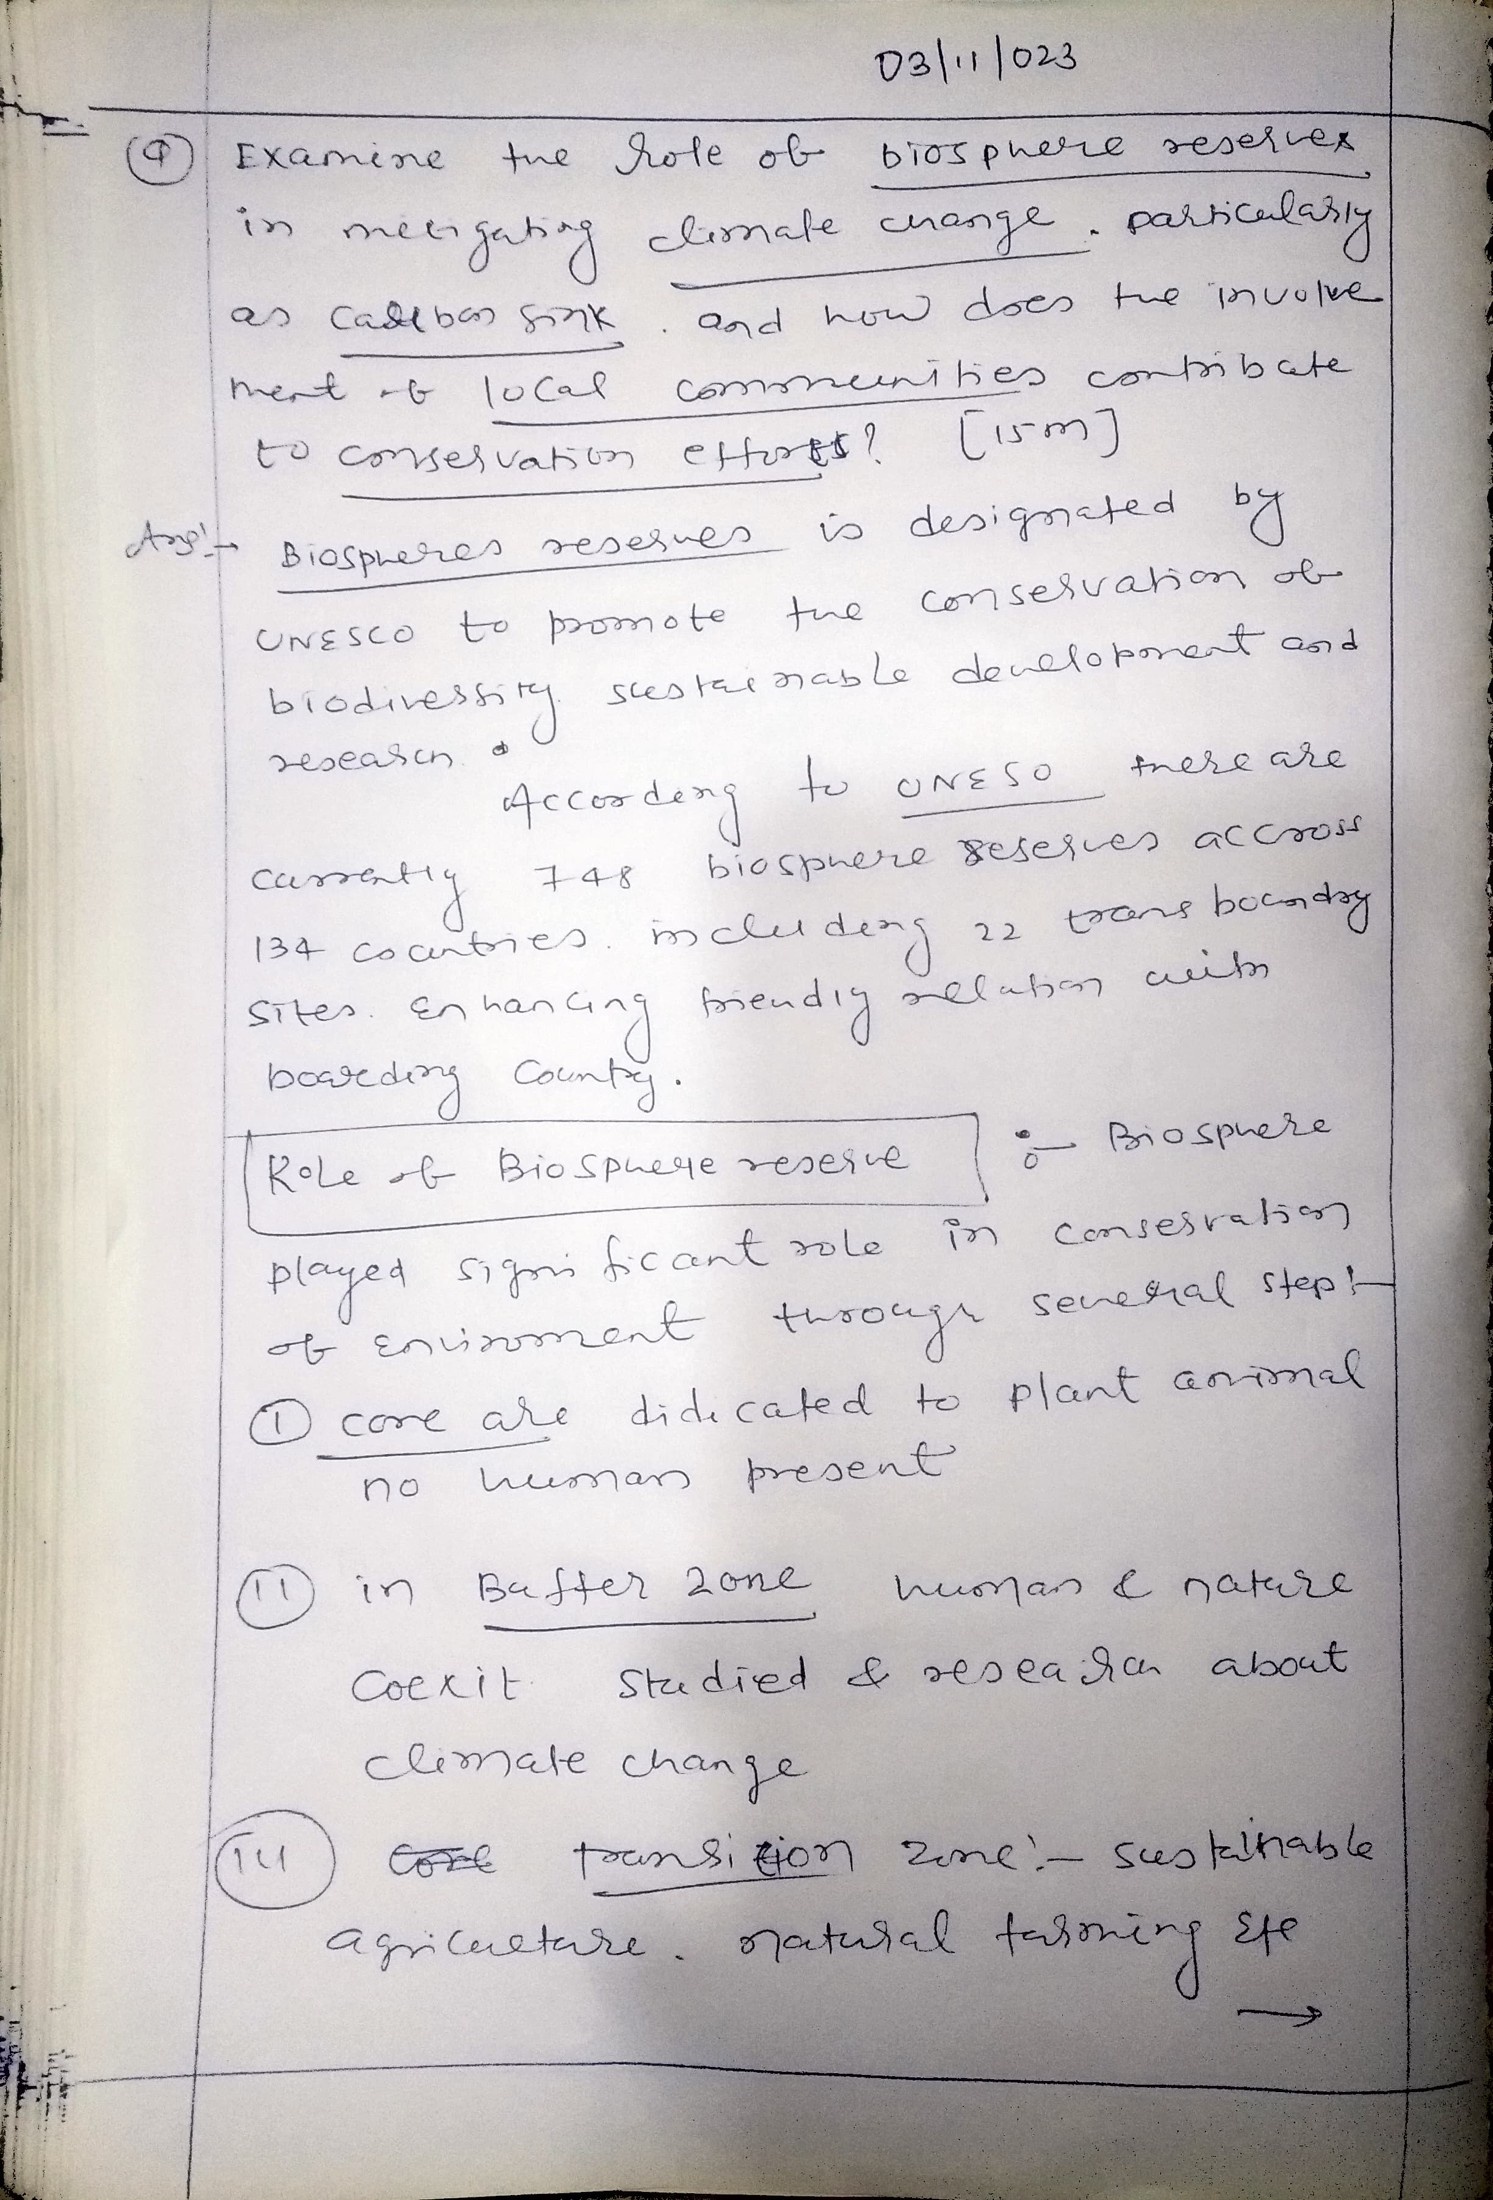 03/11/023
Q Examine the role of biosphere reserves
in mitigating climate change, particularly
as carbon sink, and how does the involve
ment of local communities contribute
to conservation efforts? [15m]
Ans:→ Biospheres reserves is designated by
UNESCO to promote the conservation of
biodiversity, sustainable development and
research.
According to UNESO there are
currently 748 biosphere reserves accross
134 countries, including 22 trans boundry
sites. Enhancing friendly relation with
boarding Country.
Role of Biosphere reserve :- Biosphere
played significant role in conservation
of enviroment through several step:-
(I) core are didicated to plant animal
no human present
(II) in Buffer zone human & nature
Coexit. Studied & research about
climate change
(III) transition zone:- sustainable
agriculture, natural farming Etc
→